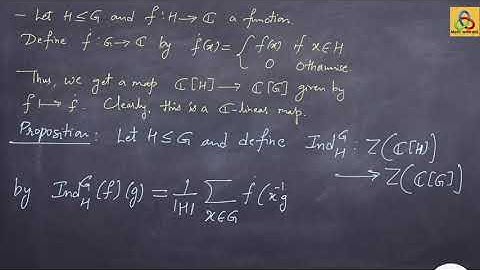 - Let H ≤ G and f : H → ℂ a function.
Define ḟ : G → ℂ by ḟ(x) = { f(x) if x ∈ H
0 Otherwise.
Thus, we get a map ℂ[H] → ℂ[G] given by
f ↦ ḟ. Clearly, this is a ℂ-linear map.
Proposition : Let H ≤ G and define Ind_H^G : Z(ℂ[H])
→ Z(ℂ[G])
by Ind_H^G (f)(g) = 1/|H| ∑_{x∈G} ḟ(x^{-1}g